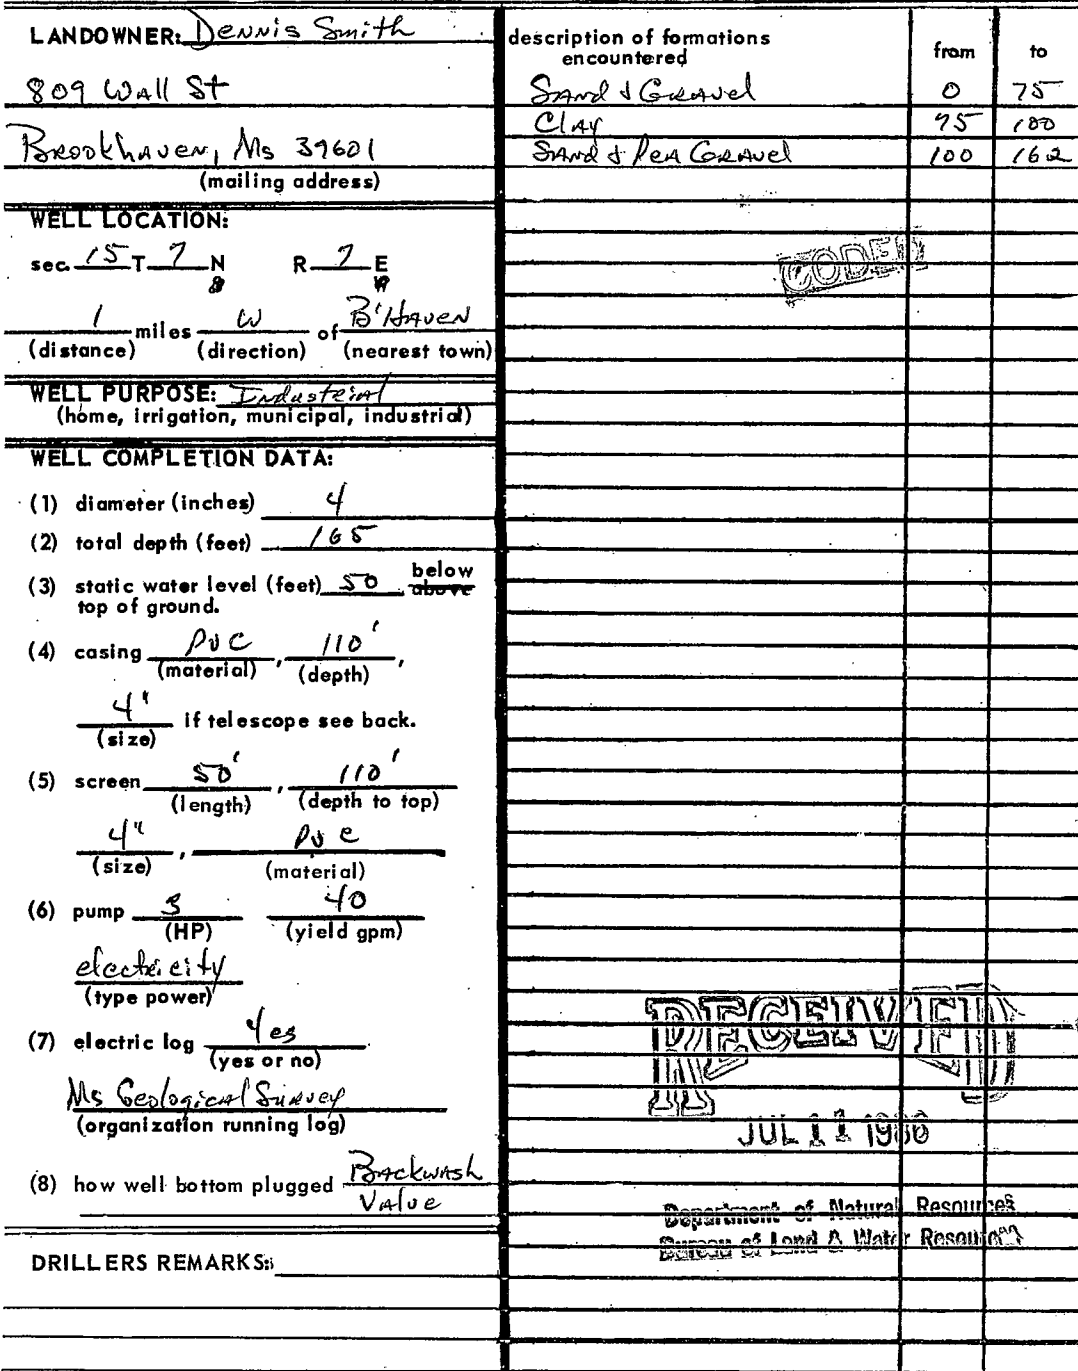 LANDOWNER: Dennis Smith
809 Wall St
Brookhaven, Ms 39601
(mailing address)
WELL LOCATION:
sec. 15 T 7 N R 7 E
1 miles W of B'Haven
(distance) (direction) (nearest town)
WELL PURPOSE: Industrial
(home, irrigation, municipal, industrial)
WELL COMPLETION DATA:
(1) diameter (inches) 4
(2) total depth (feet) 165
(3) static water level (feet) 50 below above
top of ground.
(4) casing PVC, 110',
(material) (depth)
4" if telescope see back.
(size)
(5) screen 50', 110'
(length) (depth to top)
4", PVC
(size) (material)
(6) pump 3 40
(HP) (yield gpm)
electricity
(type power)
(7) electric log Yes
(yes or no)
Ms Geological Survey
(organization running log)
(8) how well bottom plugged Backwash
Valve
DRILLERS REMARKS:
description of formations
encountered from to
Sand & Gravel 0 75
Clay 75 100
Sand & Pea Gravel 100 162
CODED
RECEIVED
JUL 11 1986
Department of Natural Resources
Bureau of Land & Water Resources